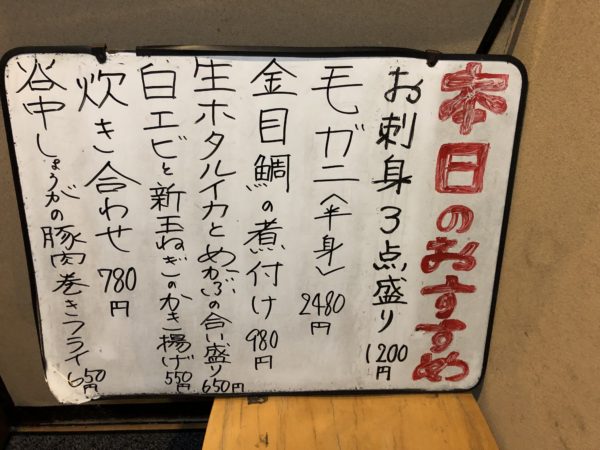 本日のおすすめ
お刺身3点盛り 1200円
毛ガニ〈半身〉 2480円
金目鯛の煮付け 980円
生ホタルイカとめかぶの合い盛り 650円
白エビと新玉ねぎのかき揚げ 550円
炊き合わせ 780円
谷中しょうがの豚肉巻きフライ 650円